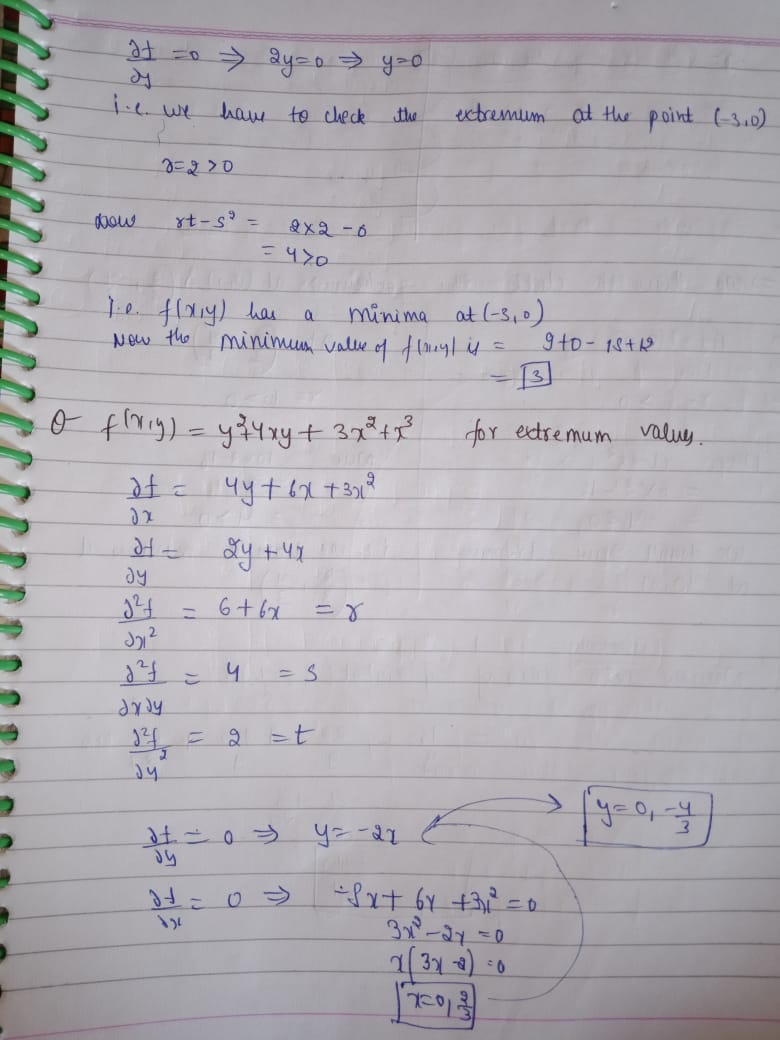 ∂f/∂y = 0 ⇒ 2y=0 ⇒ y=0
i.e. we have to check the extremum at the point (-3,0)
r=2>0
Now rt-s² = 2×2-0
= 4>0
i.e. f(x,y) has a minima at (-3,0)
Now the minimum value of f(x,y) is = 9+0-18+12
= 3
Q f(x,y) = y²+4xy+3x²+x³ for extremum values.
∂f/∂x = 4y+6x+3x²
∂f/∂y = 2y+4x
∂²f/∂x² = 6+6x = r
∂²f/∂x∂y = 4 = s
∂²f/∂y² = 2 = t
∂f/∂y = 0 ⇒ y=-2x y=0, -4/3
∂f/∂x = 0 ⇒ -8x+6x+3x²=0
3x²-2x=0
x(3x-2)=0
x=0, 2/3